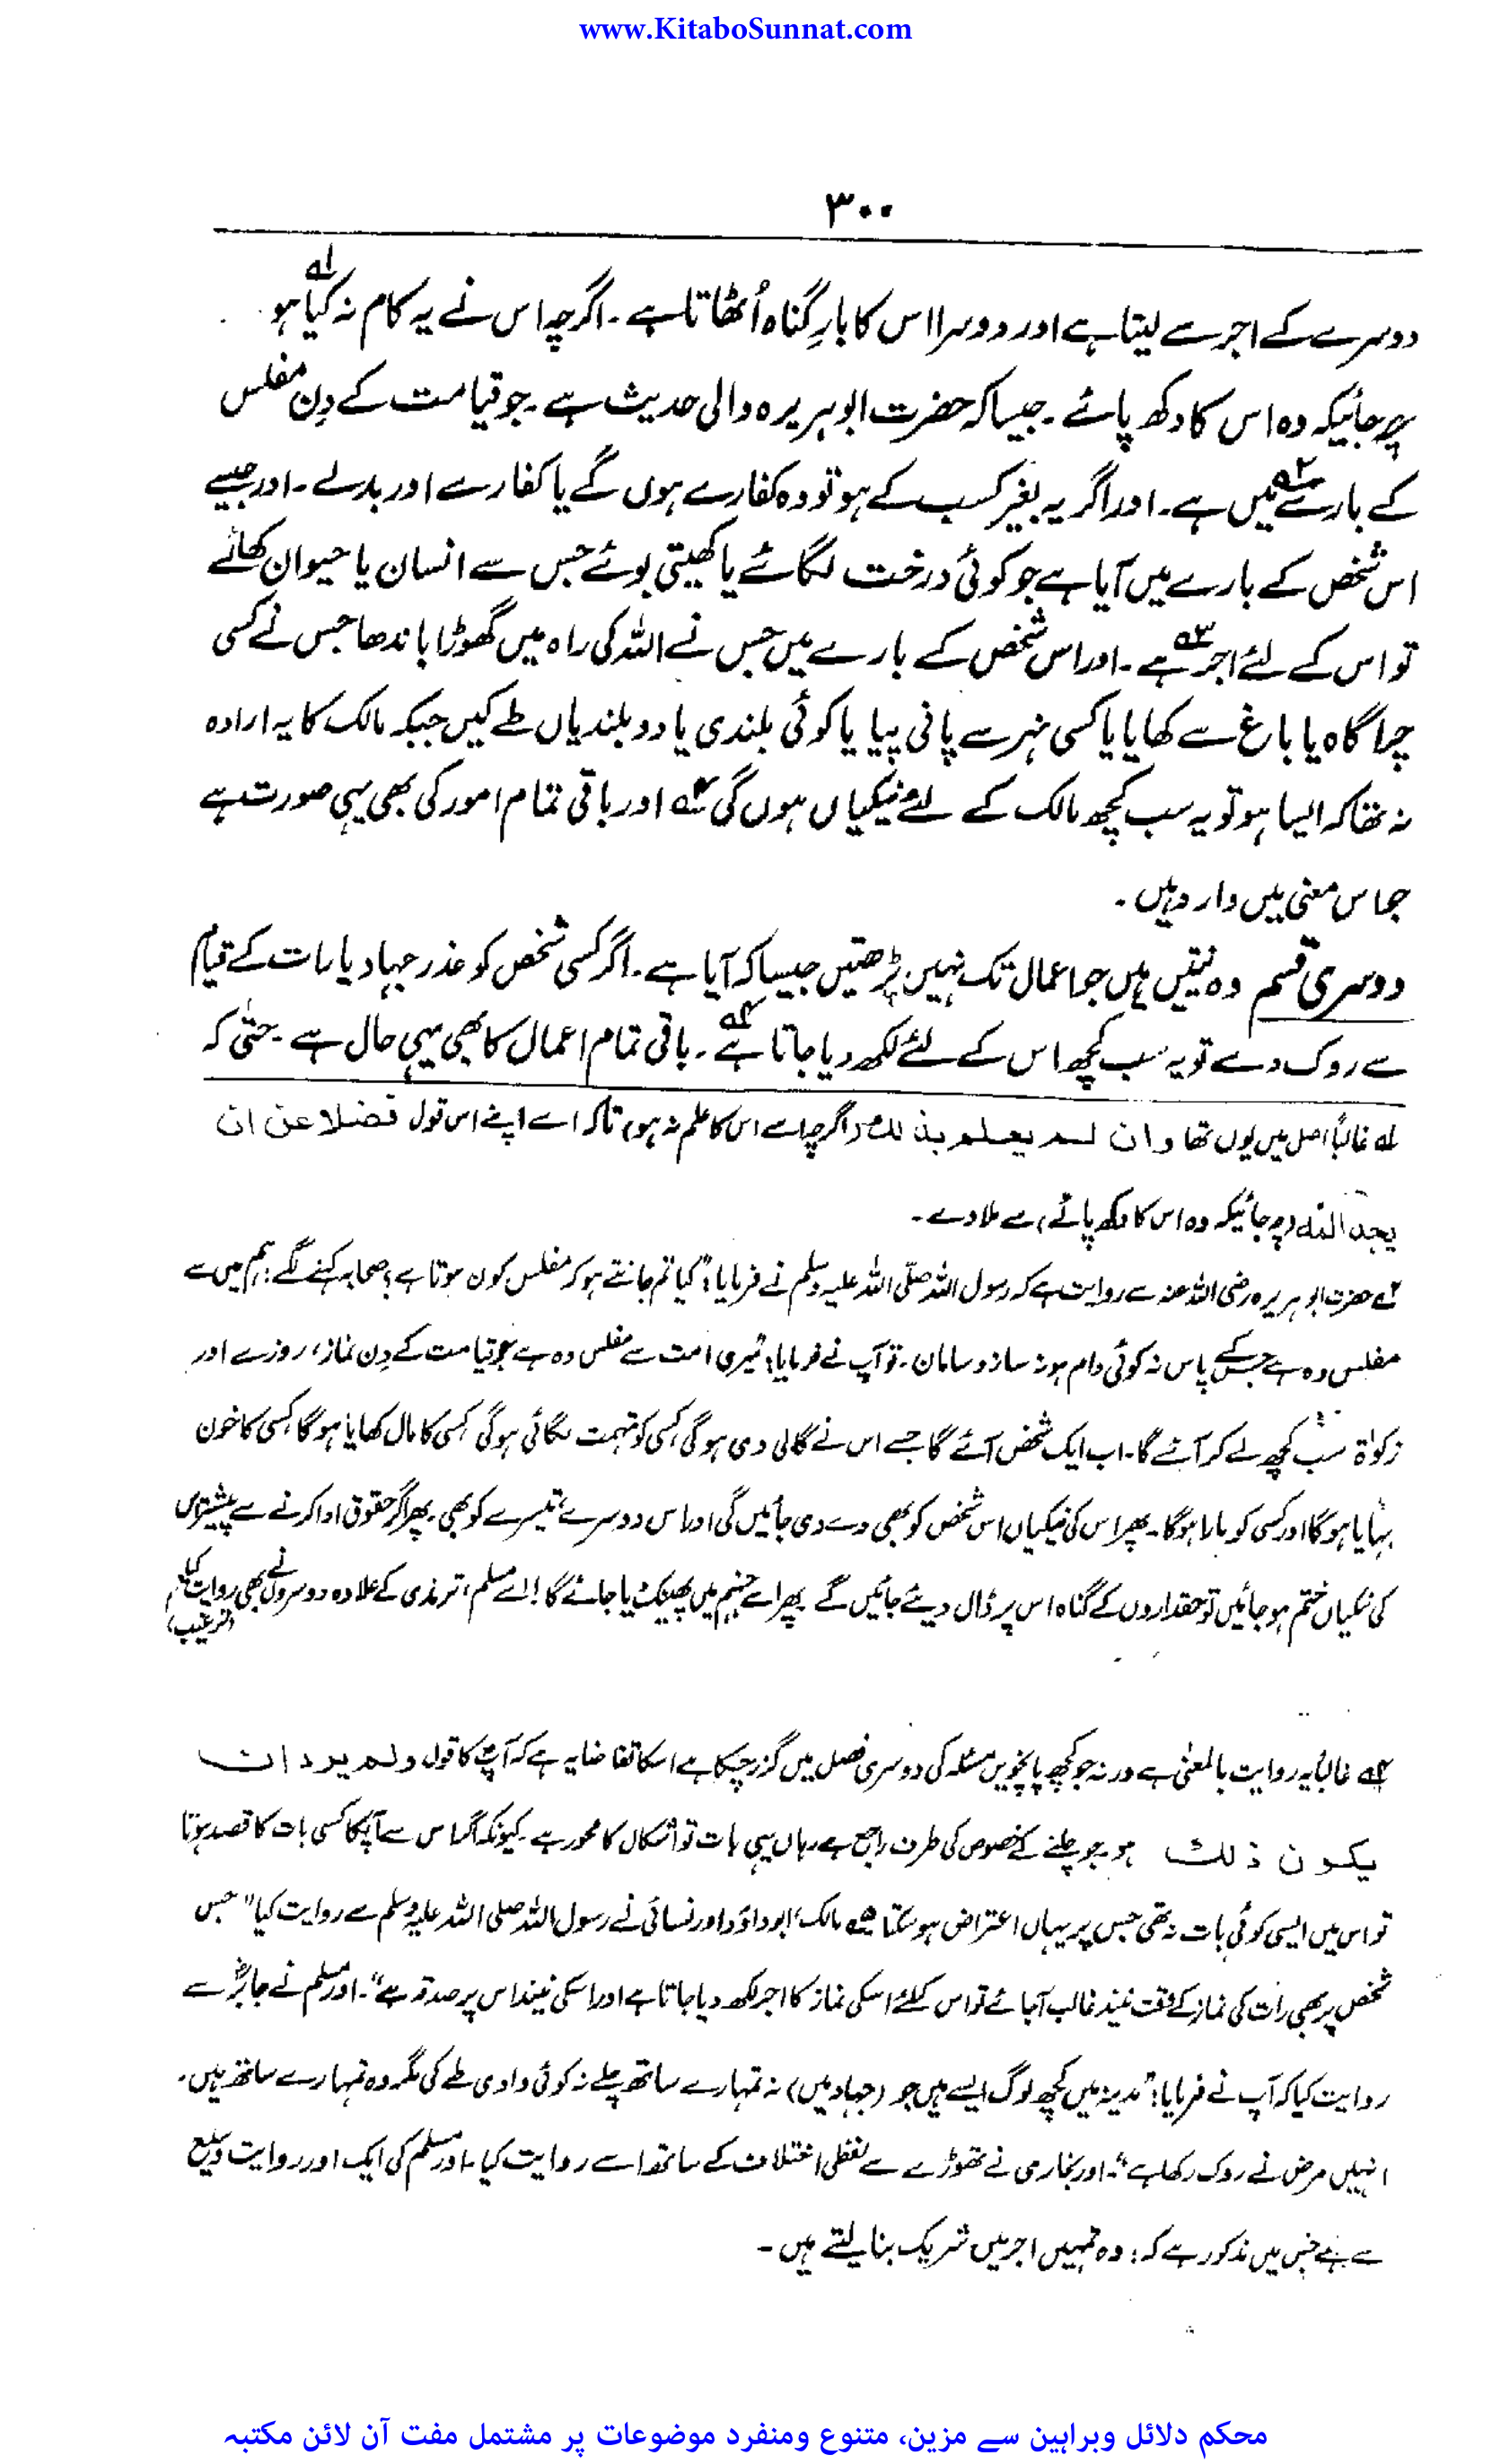 www.KitaboSunnat.com
۳۰۰
دوسرے کے اجر سے لیتا ہے اور دوسرا اس کا بارِ گناہ اُٹھاتا ہے ۔ اگرچہ اس نے یہ کام نہ کیا ہو لہ
چہ جائیکہ وہ اس کا دکھ پائے ۔ جیسا کہ حضرت ابو ہریرہ والی حدیث ہے ۔ جو قیامت کے دِن مفلس
کے بارے ۲ میں ہے ۔ اور اگر یہ بغیر کسب کے ہو تو وہ کفارے ہوں گے یا کفارے اور بدلے ۔ اور جیسے
اس شخص کے بارے میں آیا ہے جو کوئی درخت لگائے یا کھیتی بوئے جس سے انسان یا حیوان کھائے
تو اس کے لئے اجر ۳ ہے ۔ اور اس شخص کے بارے میں جس نے اللہ کی راہ میں گھوڑا باندھا جس نے کسی
چراگاہ یا باغ سے کھایا یا کسی نہر سے پانی پیا یا کوئی بلندی یا دو بلندیاں طے کیں جبکہ مالک کا یہ ارادہ
نہ تھا کہ ایسا ہو تو یہ سب کچھ مالک کے لئے نیکیاں ہوں گی ۴ اور باقی تمام امور کی بھی یہی صورت ہے
جو اس معنی میں وارد ہیں ۔
دوسری قسم وہ نیتیں ہیں جو اعمال تک نہیں بڑھتیں جیسا کہ آیا ہے ۔ اگر کسی شخص کو عذر جہاد یا رات کے قیام
سے روک دے تو یہ سب کچھ اس کے لئے لکھ دیا جاتا ہے ۔ باقی تمام اعمال کا بھی یہی حال ہے ۔ حتٰی کہ
لہ غالباً اصل میں یوں تھا وان لم یعلم بذلک (اگرچہ اسے اس کا علم نہ ہو) تاکہ اسے اپنے اس قول فضلا عن ان
یجد المہ (چہ جائیکہ وہ اس کا دکھ پائے) سے ملا دے ۔
۲ حضرت ابو ہریرہ رضی اللہ عنہ سے روایت ہے کہ رسول اللہ صلّی اللہ علیہ وسلم نے فرمایا: "کیا تم جانتے ہو کہ مفلس کون ہوتا ہے؟ صحابہ کہنے لگے: ہم میں سے
مفلس وہ ہے جس کے پاس نہ کوئی دام ہو نہ ساز و سامان ۔ تو آپ نے فرمایا: میری امت سے مفلس وہ ہے جو قیامت کے دِن نماز، روزے اور
زکوٰۃ سب کچھ لے کر آئے گا ۔ اب ایک شخص آئے گا جسے اس نے گالی دی ہو گی کسی کو تہمت لگائی ہو گی کسی کا مال کھایا ہو گا کسی کا خون
بہایا ہو گا اور کسی کو مارا ہو گا ۔ پھر اس کی نیکیاں اس شخص کو بھی دے دی جائیں گی اور اس دوسرے تیسرے کو بھی ۔ پھر اگر حقوق ادا کرنے سے پیشتر اس
کی نیکیاں ختم ہو جائیں تو حقداروں کے گناہ اس پر ڈال دیئے جائیں گے پھر اسے جہنم میں پھینک دیا جائے گا! اسے مسلم، ترمذی کے علاوہ دوسروں نے بھی روایت کیا
(ترغیب)
۴ غالباً یہ روایت بالمعنیٰ ہے ورنہ جو کچھ پانچویں مسئلہ کی دوسری فصل میں گزر چکا ہے اسکا تقاضا یہ ہے کہ آپ کا قول ولم یرد ان
یکون ذلک ہو جو چلنے کے خصوص کی طرف راجع ہے ۔ ہاں یہی بات تو اشکال کا محور ہے ۔ کیونکہ اگر اس سے آپکا کسی بات کا قصد ہوتا
تو اس میں ایسی کوئی بات نہ تھی جس پر یہاں اعتراض ہو سکتا ۵ مالک، ابوداؤد اور نسائی نے رسول اللہ صلی اللہ علیہ وسلم سے روایت کیا "جس
شخص پر بھی رات کی نماز کے وقت نیند غالب آ جائے تو اس کیلئے اسکی نماز کا اجر لکھ دیا جاتا ہے اور اسکی نیند اس پر صدقہ ہے" ۔ اور مسلم نے جابرؓ سے
روایت کیا کہ آپ نے فرمایا: "مدینہ میں کچھ لوگ ایسے ہیں جو (جہاد میں) نہ تمہارے ساتھ چلے نہ کوئی وادی طے کی مگر وہ تمہارے ساتھ ہیں ۔
انہیں مرض نے روک رکھا ہے" ۔ اور بخاری نے تھوڑے سے لفظی اختلاف کے ساتھ اسے روایت کیا ۔ اور مسلم کی ایک اور روایت وکیع
سے ہے جس میں مذکور ہے کہ: وہ تمہیں اجر میں شریک بنا لیتے ہیں ۔
محکم دلائل وبراہین سے مزین، متنوع ومنفرد موضوعات پر مشتمل مفت آن لائن مکتبہ